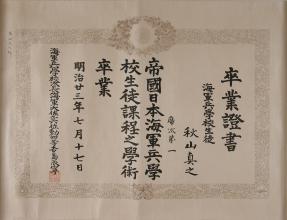 卒業證書
海軍兵學校生徒
秋山真之
席次第一
帝國日本海軍兵學
校生徒課程之學術
卒業
明治廿三年七月十七日